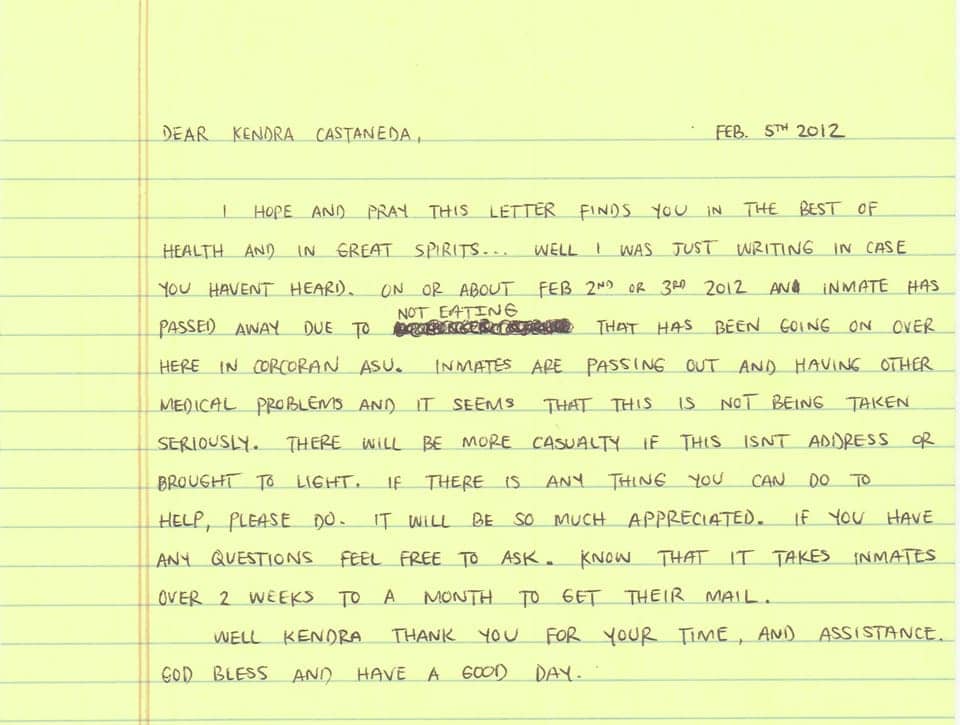 DEAR KENDRA CASTANEDA, FEB. 5TH 2012
I HOPE AND PRAY THIS LETTER FINDS YOU IN THE BEST OF
HEALTH AND IN GREAT SPIRITS... WELL I WAS JUST WRITING IN CASE
YOU HAVENT HEARD. ON OR ABOUT FEB 2ND OR 3RD 2012 AN INMATE HAS
NOT EATING
PASSED AWAY DUE TO THAT HAS BEEN GOING ON OVER
HERE IN CORCORAN ASU. INMATES ARE PASSING OUT AND HAVING OTHER
MEDICAL PROBLEMS AND IT SEEMS THAT THIS IS NOT BEING TAKEN
SERIOUSLY. THERE WILL BE MORE CASUALTY IF THIS ISNT ADDRESS OR
BROUGHT TO LIGHT. IF THERE IS ANY THING YOU CAN DO TO
HELP, PLEASE DO. IT WILL BE SO MUCH APPRECIATED. IF YOU HAVE
ANY QUESTIONS FEEL FREE TO ASK. KNOW THAT IT TAKES INMATES
OVER 2 WEEKS TO A MONTH TO GET THEIR MAIL.
WELL KENDRA THANK YOU FOR YOUR TIME, AND ASSISTANCE.
GOD BLESS AND HAVE A GOOD DAY.